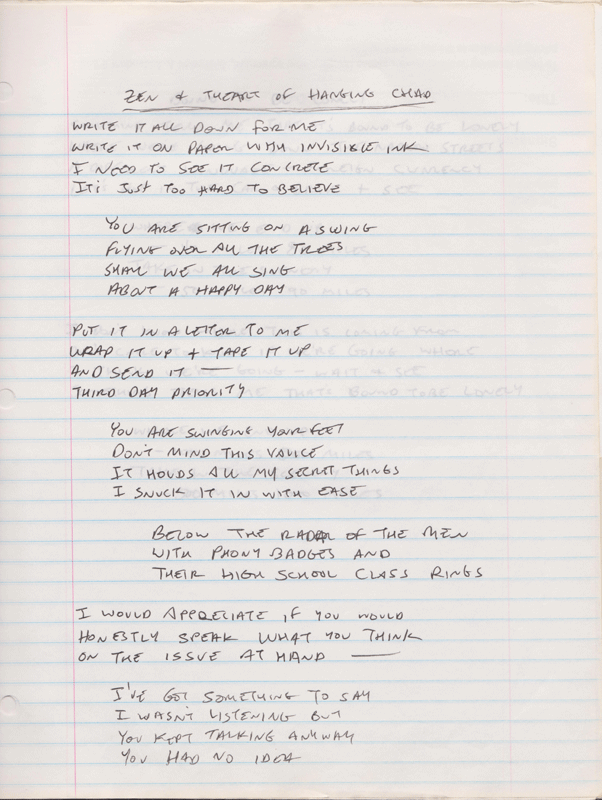 ZEN & THEART OF HANGING CHAD
WRITE IT ALL DOWN FOR ME
WRITE IT ON PAPER WITH INVISIBLE INK
I NEED TO SEE IT CONCRETE
IT'S JUST TOO HARD TO BELIEVE
YOU ARE SITTING ON A SWING
FLYING OVER ALL THE TREES
SHALL WE ALL SING
ABOUT A HAPPY DAY
PUT IT IN A LETTER TO ME
WRAP IT UP & TAPE IT UP
AND SEND IT —
THIRD DAY PRIORITY
YOU ARE SWINGING YOUR FEET
DON'T MIND THIS VALICE
IT HOLDS ALL MY SECRET THINGS
I SNUCK IT IN WITH EASE
BELOW THE RADAR OF THE MEN
WITH PHONY BADGES AND
THEIR HIGH SCHOOL CLASS RINGS
I WOULD APPRECIATE IF YOU WOULD
HONESTLY SPEAK WHAT YOU THINK
ON THE ISSUE AT HAND —
I'VE GOT SOMETHING TO SAY
I WASN'T LISTENING BUT
YOU KEPT TALKING ANYWAY
YOU HAD NO IDEA